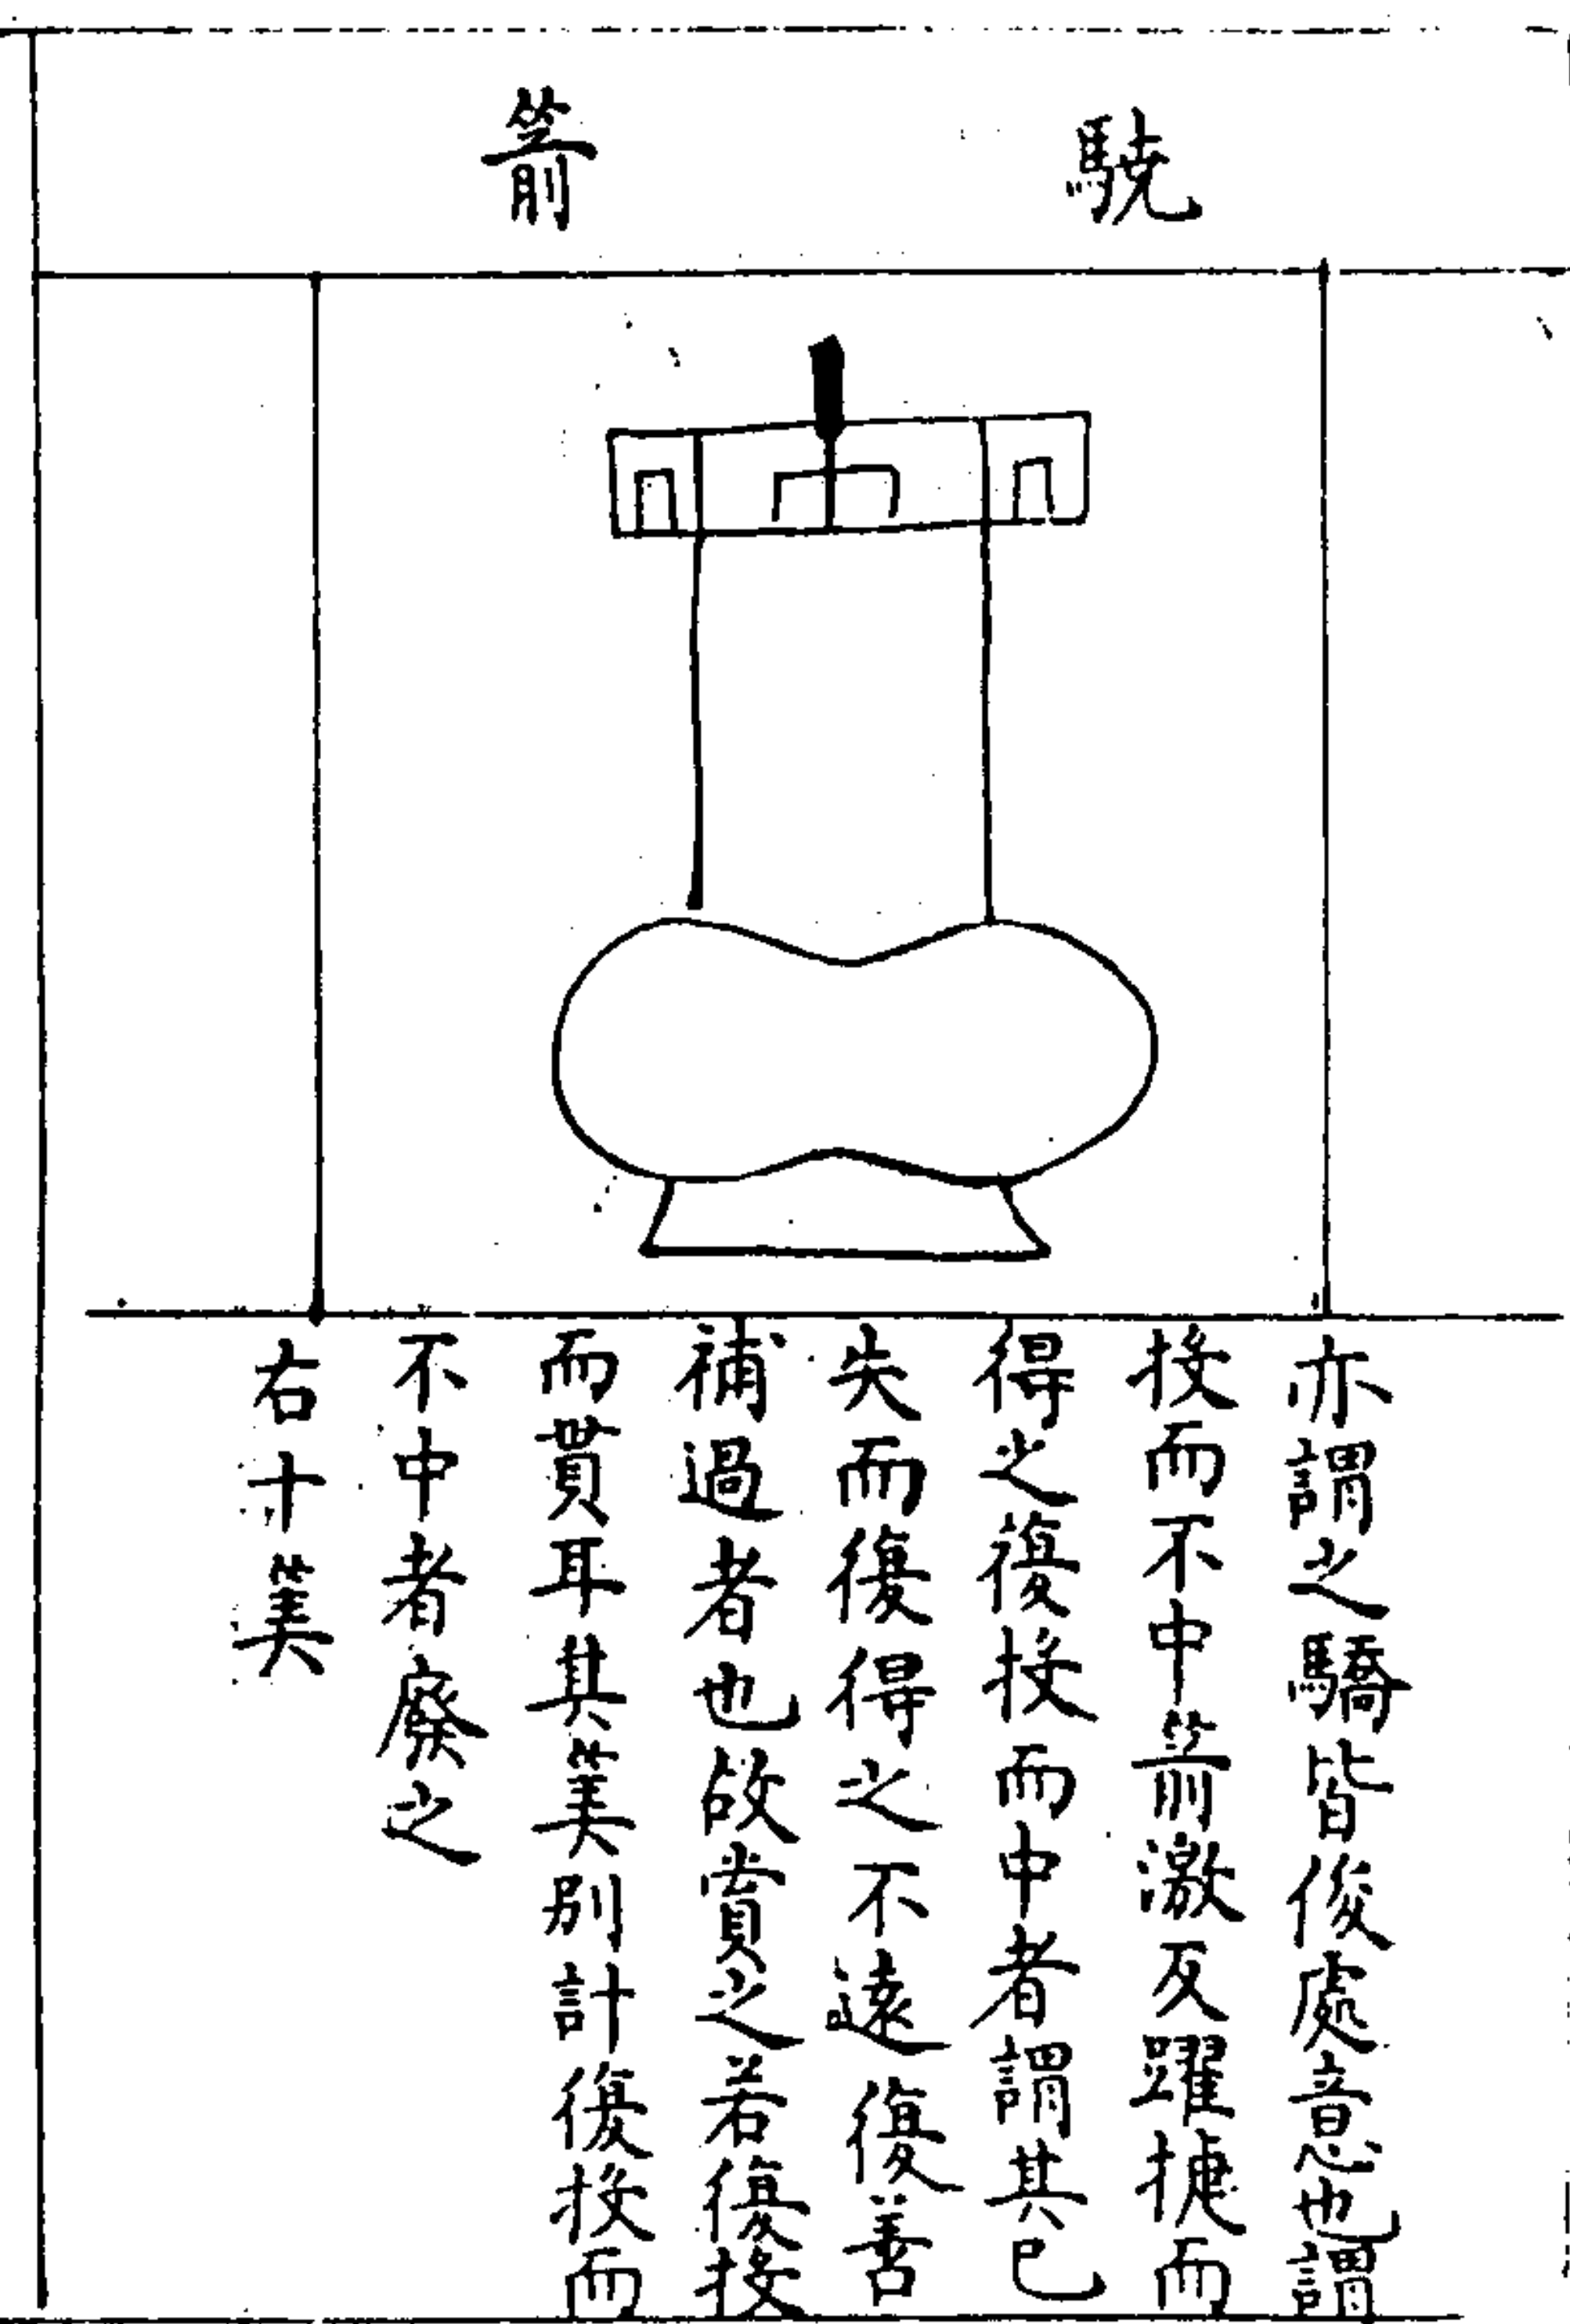 驍箭
亦謂之驕皆俊處意也謂
投而不中箭激反躍捷而
得之復投而中者謂其已
失而復得之不遠復善
補過者也故賞之若復投
而貫耳其筭别計復投而
不中者廢之
右十筭